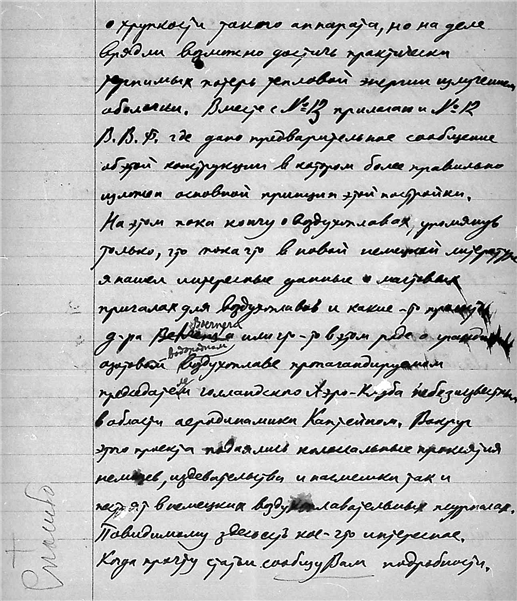 о хрупкости такого аппарата, но на деле
врядли возможно достичь практически
терпимых потерь тепловой энергии излучением
оболочки. Вместе с № 13 прилагаю и № 12
В.В.Ф. где дано предварительное сообщение
об этой конструкции в котором более правильно
изложен основной принцип этой постройки.
На этом пока кончу о воздухоплавах, упомянув
только, что пока что в новой немецкой литературе
я нашел интересные данные о мачтовых
причалах для воздухоплавов и какие-то
Воетега
д-ра или что-то в этом роде о
водородном
азотовом воздухоплаве пропагандируемом
председателем голландского Аэро-Клуба небезызвестным
в области аеродинамики Каптейном. Вокруг
этого проекта поднялись колоссальные проклятия
немцев, издевательства и насмешки так и
пестрят в немецких воздухоплавательных журналах.
Повидимому здесь есть кое-что интересное.
Когда прочту статьи сообщу Вам подробности.
Спасибо